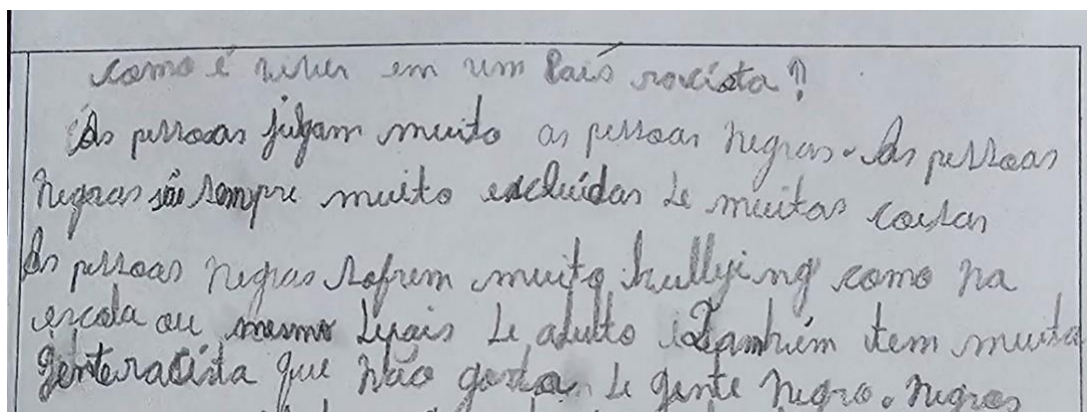 como é viver em um País racista?
As pessoas julgam muito as pessoas negras. As pessoas
negras são sempre muito excluídas de muitas coisas
As pessoas negras sofrem muito bullying como na
escola ou mesmo depois de adulto Também tem muita
gente racista que não gostam de gente negro. negros